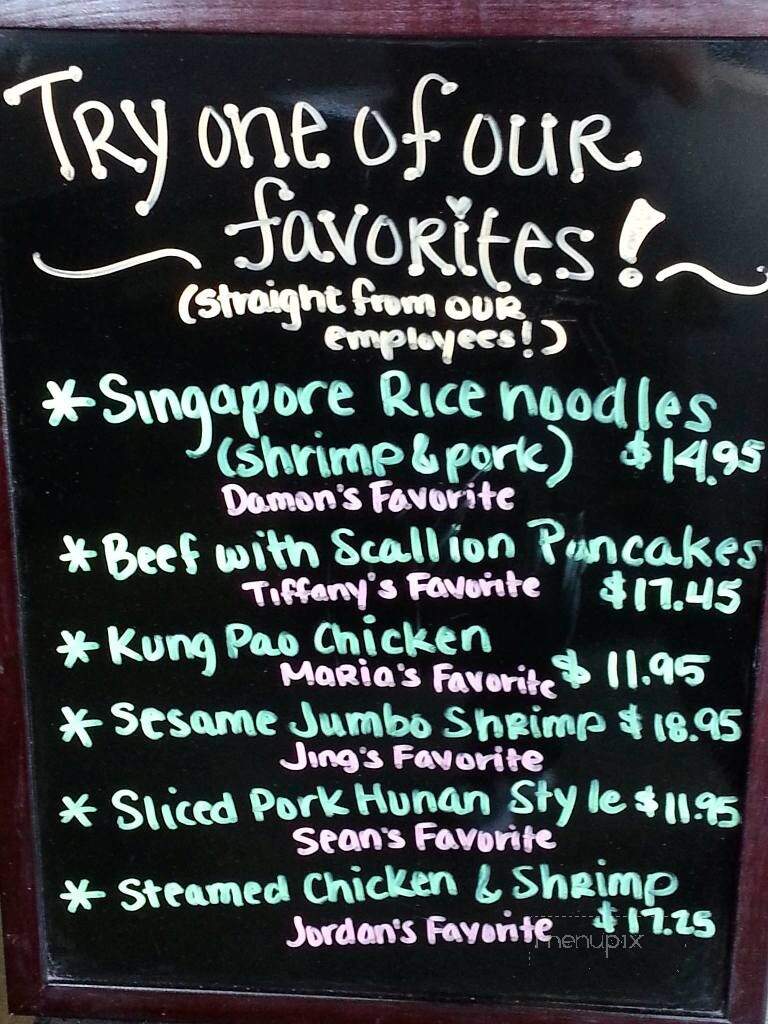 Try one of our
favorites!
(straight from our
employees!)
* Singapore Rice noodles
(shrimp & pork) $14.95
Damon's Favorite
* Beef with Scallion Pancakes
Tiffany's Favorite $17.45
* Kung Pao Chicken
Maria's Favorite $11.95
* Sesame Jumbo Shrimp $18.95
Jing's Favorite
* Sliced Pork Hunan Style $11.95
Sean's Favorite
* Steamed Chicken & Shrimp
Jordan's Favorite $17.25
menupix